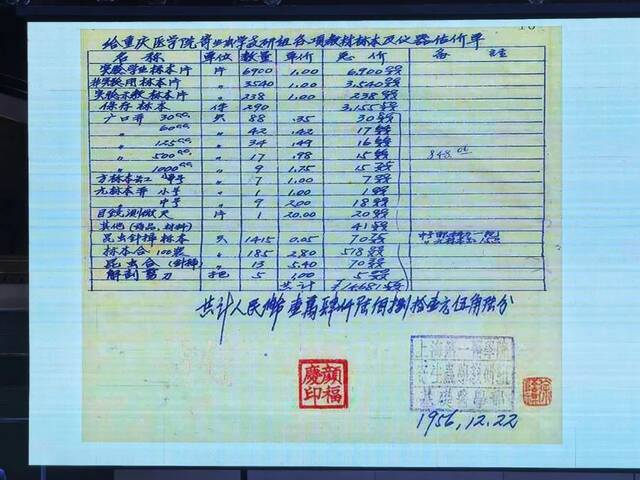 给重庆医学院寄生虫学教研组各项教材标本及仪器估价单
名称 单位 数量 单价 总价 备注
实验学生标本片 片 6900 1.00 6,900
非实验用标本片 〃 3540 1.00 3,540
实验示教标本片 〃 238 1.00 238
保存标本 件 290 3,155
广口瓶 30cc 只 88 .35 30
〃 60cc 〃 42 .42 17
〃 125cc 〃 34 .49 16
〃 500cc 〃 17 .98 15
〃 1000cc 〃 9 1.75 15
方标本缸 〃 7 1.00 7
元标本瓶 小号 〃 1 1.00 1
〃 中号 〃 9 2.00 18
目镜测微尺 片 1 20.00 20
其他(药品、材料) 41
昆虫针插标本 只 1415 0.05 70
标本合 100装 〃 185 2.80 518
昆虫合(针插) 〃 13 5.40 70
解剖剪刀 把 5 1.00 5
共计 ¥14681
共计人民币壹万肆仟陆佰捌拾壹元伍角陆分
颜福庆印
上海第一医学院
寄生虫学教研组
基础医学部
1956,12.22